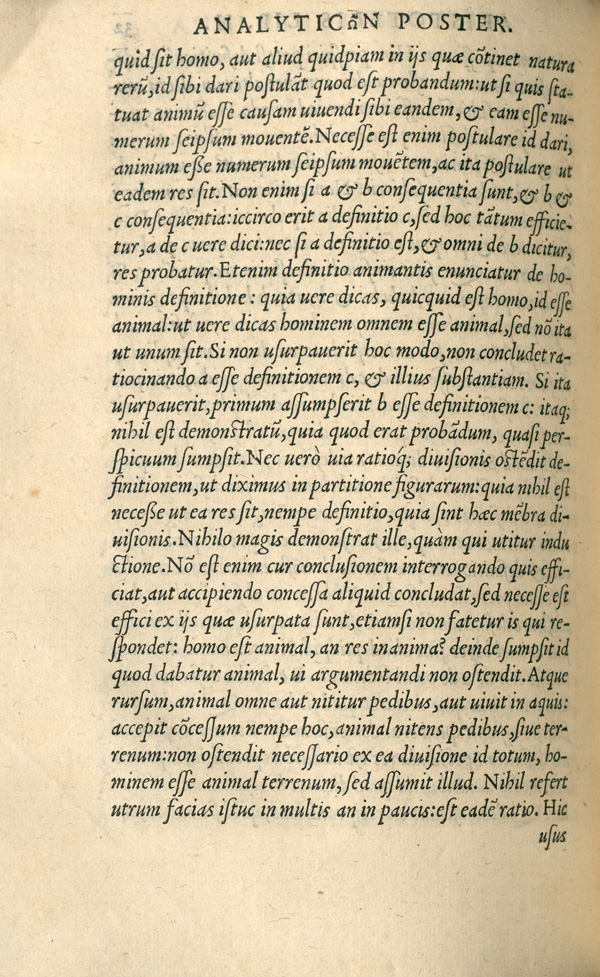 ANALYTICωN POSTER.
quid sit homo, aut aliud quidpiam in ijs quæ cōtinet natura
rerū, id sibi dari postulāt quod est probandum: ut si quis sta-
tuat animū esse causam uiuendi sibi eandem, & eam esse nu-
merum seipsum mouentē. Necesse est enim postulare id dari,
animum esse numerum seipsum mouētem, ac ita postulare ut
eadem res sit. Non enim si a & b consequentia sunt, & b &
c consequentia: iccirco erit a definitio c, sed hoc tātum efficie-
tur, a de c uere dici: nec si a definitio est, & omni de b dicitur,
res probatur. Etenim definitio animantis enunciatur de ho-
minis definitione : quia uere dicas, quicquid est homo, id esse
animal: ut uere dicas hominem omnem esse animal, sed nō ita
ut unum sit. Si non usurpauerit hoc modo, non concludet ra-
tiocinando a esse definitionem c, & illius substantiam. Si ita
usurpauerit, primum assumpserit b esse definitionem c: itaq;
nihil est demonstratū, quia quod erat probādum, quasi per-
spicuum sumpsit. Nec uerò uia ratioq́; diuisionis ostēdit de-
finitionem, ut diximus in partitione figurarum: quia nihil est
necesse ut ea res sit, nempe definitio, quia sint hæc mēbra di-
uisionis. Nihilo magis demonstrat ille, quàm qui utitur indu
ctione. Nō est enim cur conclusionem interrogando quis effi-
ciat, aut accipiendo concessa aliquid concludat, sed necesse est
effici ex ijs quæ usurpata sunt, etiamsi non fatetur is qui re-
spondet: homo est animal, an res inanima? deinde sumpsit id
quod dabatur animal, ui argumentandi non ostendit. Atque
rursum, animal omne aut nititur pedibus, aut uiuit in aquis:
accepit cōcessum nempe hoc, animal nitens pedibus, siue ter-
renum: non ostendit necessario ex ea diuisione id totum, ho-
minem esse animal terrenum, sed assumit illud. Nihil refert
utrum facias istuc in multis an in paucis: est eadē ratio. Hic
usus